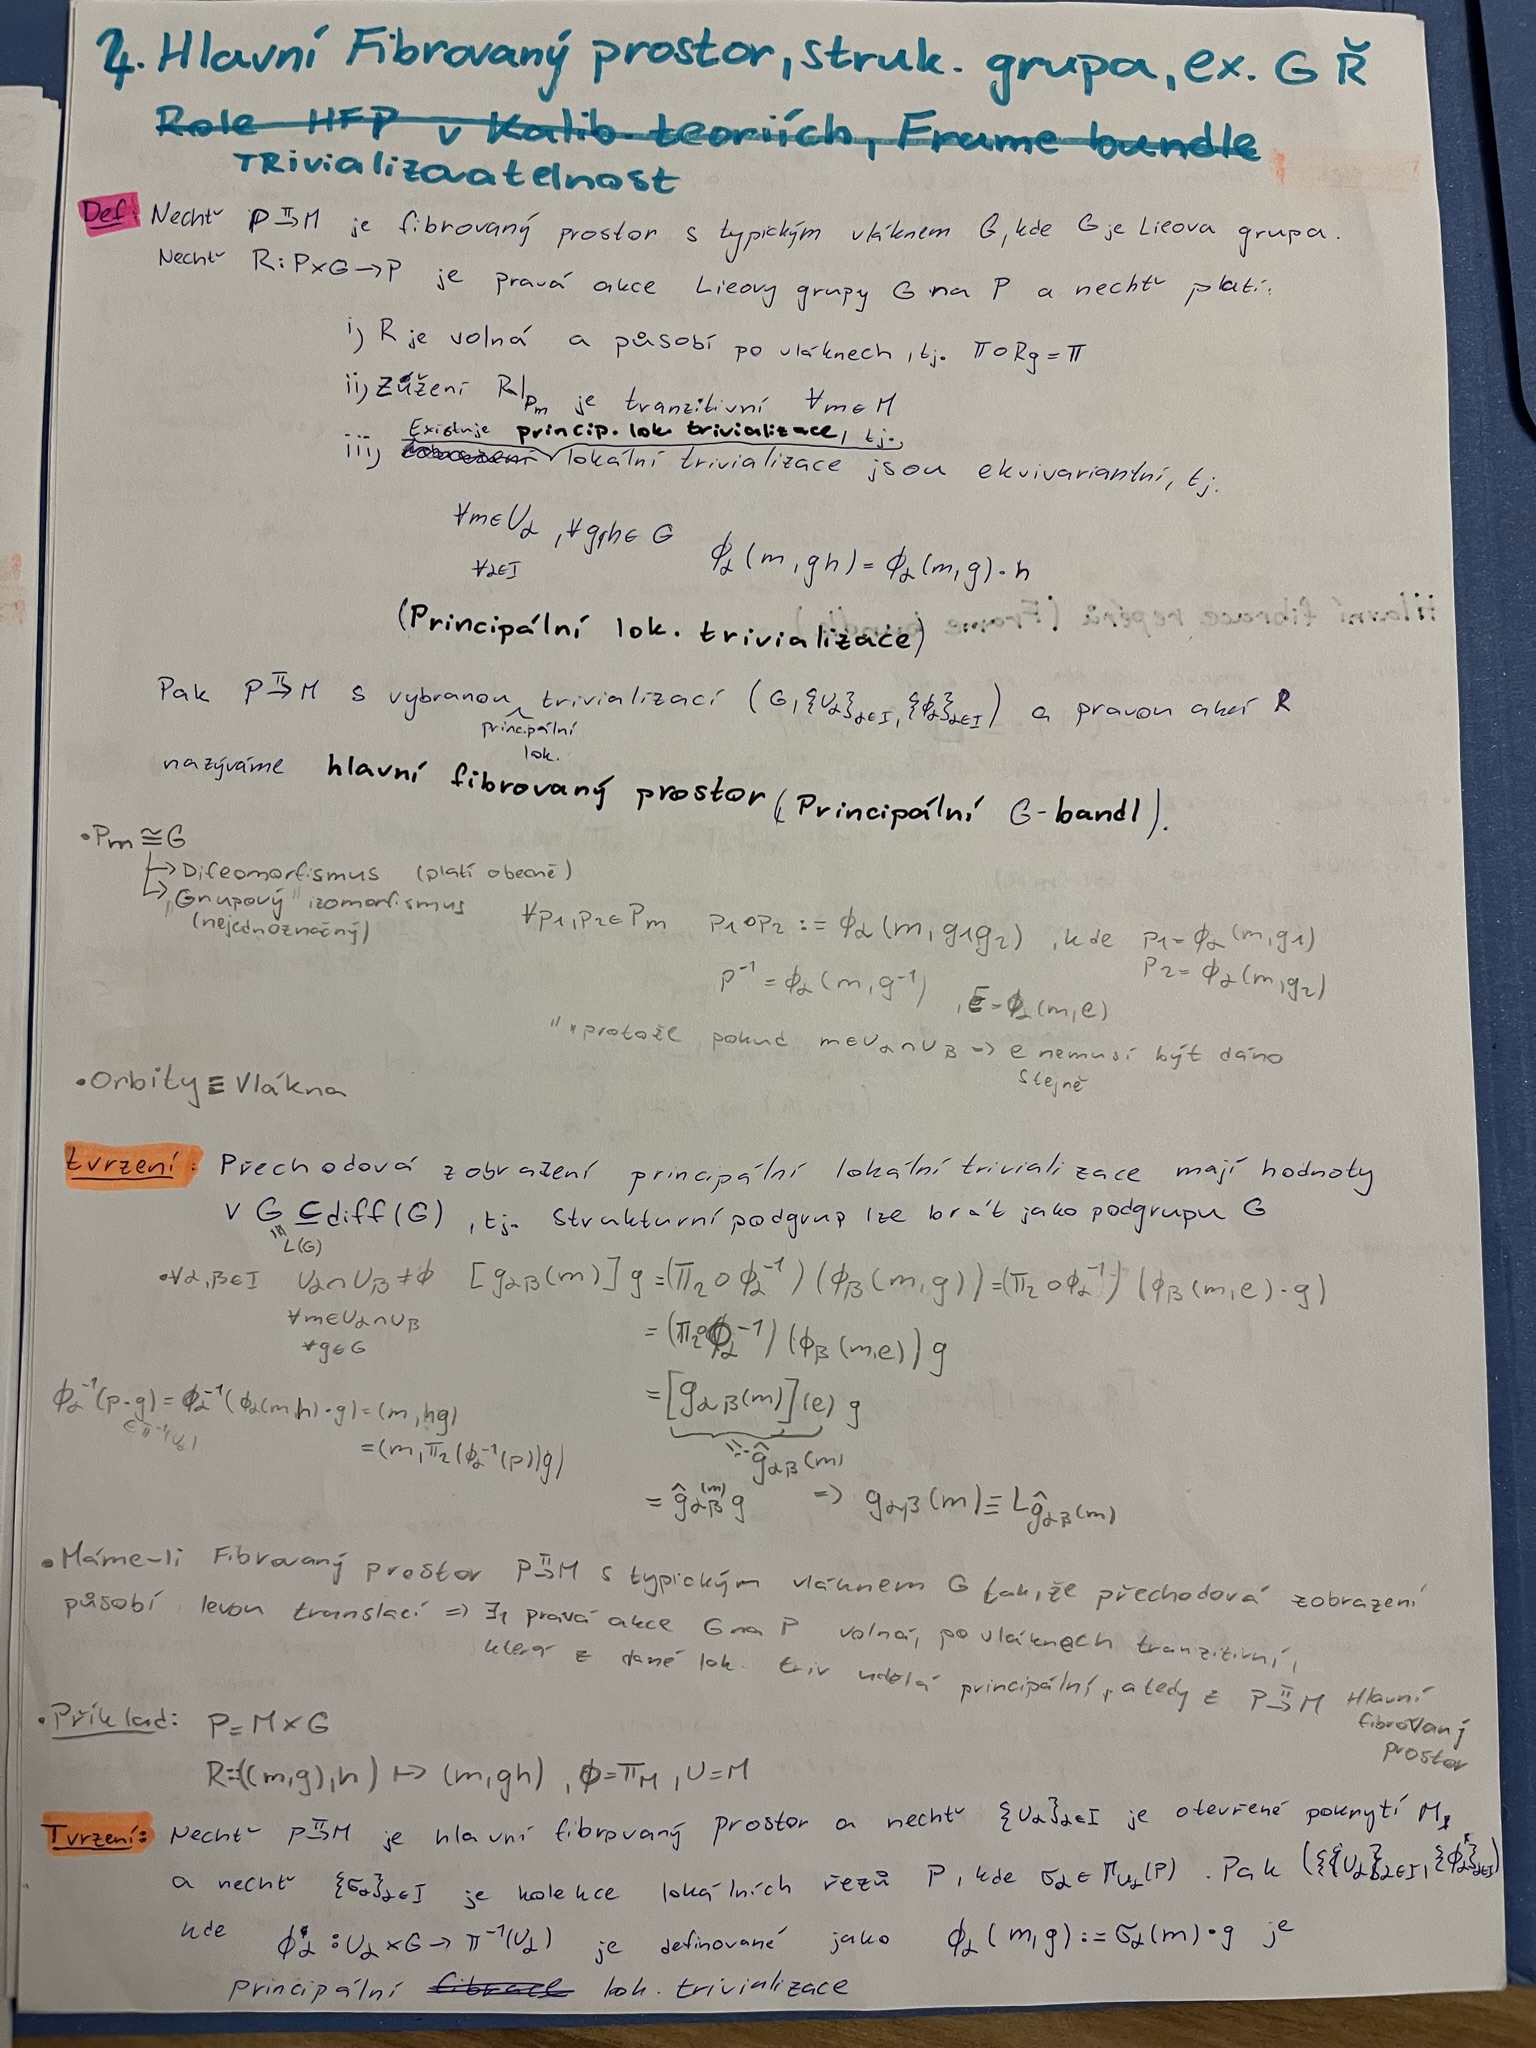 4. Hlavní Fibrovaný prostor, struk. grupa, ex. G Ř
Role HFP v Kalib. teoriích, Frame bundle
TRivializovatelnost
Def: Nechť P→M je fibrovaný prostor s typickým vláknem G, kde G je Lieova grupa.
Nechť R: P×G→P je pravá akce Lieovy grupy G na P a nechť platí:
i) R je volná a působí po vláknech, tj. π∘Rg = π
ii) Zúžení R|Pm je tranzitivní ∀m∈M
Existuje princip. lok. trivializace, tj.,
iii) lokální trivializace jsou ekvivariantní, tj.
∀m∈Uα, ∀g,h∈G ϕα(m,gh) = ϕα(m,g)·h
∀α∈I
(Principální lok. trivializace)
Pak P→M s vybranou trivializací (G, {Uα}α∈I, {ϕα}α∈I) a pravou akcí R
principální
lok.
nazýváme hlavní fibrovaný prostor (Principální G-bandl).
•Pm ≅ G
↳ Difeomorfismus (platí obecně)
↳ "Grupový" izomorfismus
(nejednoznačný)
∀p1,p2∈Pm p1∘p2 := ϕα(m,g1g2), kde p1=ϕα(m,g1)
p2=ϕα(m,g2)
p⁻¹ = ϕα(m,g⁻¹), E=ϕα(m,e)
" " protože pokud m∈Uα∩Uβ → e nemusí být dáno
stejně
•Orbity ≡ Vlákna
tvrzení: Přechodová zobrazení principální lokální trivializace mají hodnoty
v G ⊆ diff(G), tj. Strukturní podgrup lze brát jako podgrupu G
L(G)
•∀α,β∈I Uα∩Uβ≠∅ [gαβ(m)]g = (π2∘ϕα⁻¹)(ϕβ(m,g)) = (π2∘ϕα⁻¹)(ϕβ(m,e)·g)
∀m∈Uα∩Uβ
∀g∈G
= (π2∘ϕα⁻¹)(ϕβ(m,e))g
= [gαβ(m)](e) g
ĝαβ(m)
= ĝαβ(m) g ⇒ gαβ(m) ≡ Lĝαβ(m)
ϕα⁻¹(p·g) = ϕα⁻¹(ϕα(m,h)·g) = (m,hg)
∈π⁻¹(Uα)
= (m, π2(ϕα⁻¹(p))g)
•Máme-li Fibrovaný prostor P→M s typickým vláknem G tak, že přechodová zobrazení
působí levou translací ⇒ ∃1 pravá akce G na P volná, po vláknech tranzitivní,
která z dané lok. triv udělá principální, a tedy z P→M Hlavní
fibrovaný
prostor
•Příklad: P=M×G
R:((m,g),h) ↦ (m,gh), ϕ=πM, U=M
Tvrzení: Nechť P→M je hlavní fibrovaný prostor a nechť {Uα}α∈I je otevřené pokrytí M,
a nechť {σα}α∈I je kolekce lokálních řezů P, kde σα∈ΓUα(P). Pak ({Uα}α∈I, {ϕα}α∈I)
kde ϕα: Uα×G → π⁻¹(Uα) je definované jako ϕα(m,g) := σα(m)·g je
principální fibrace lok. trivializace